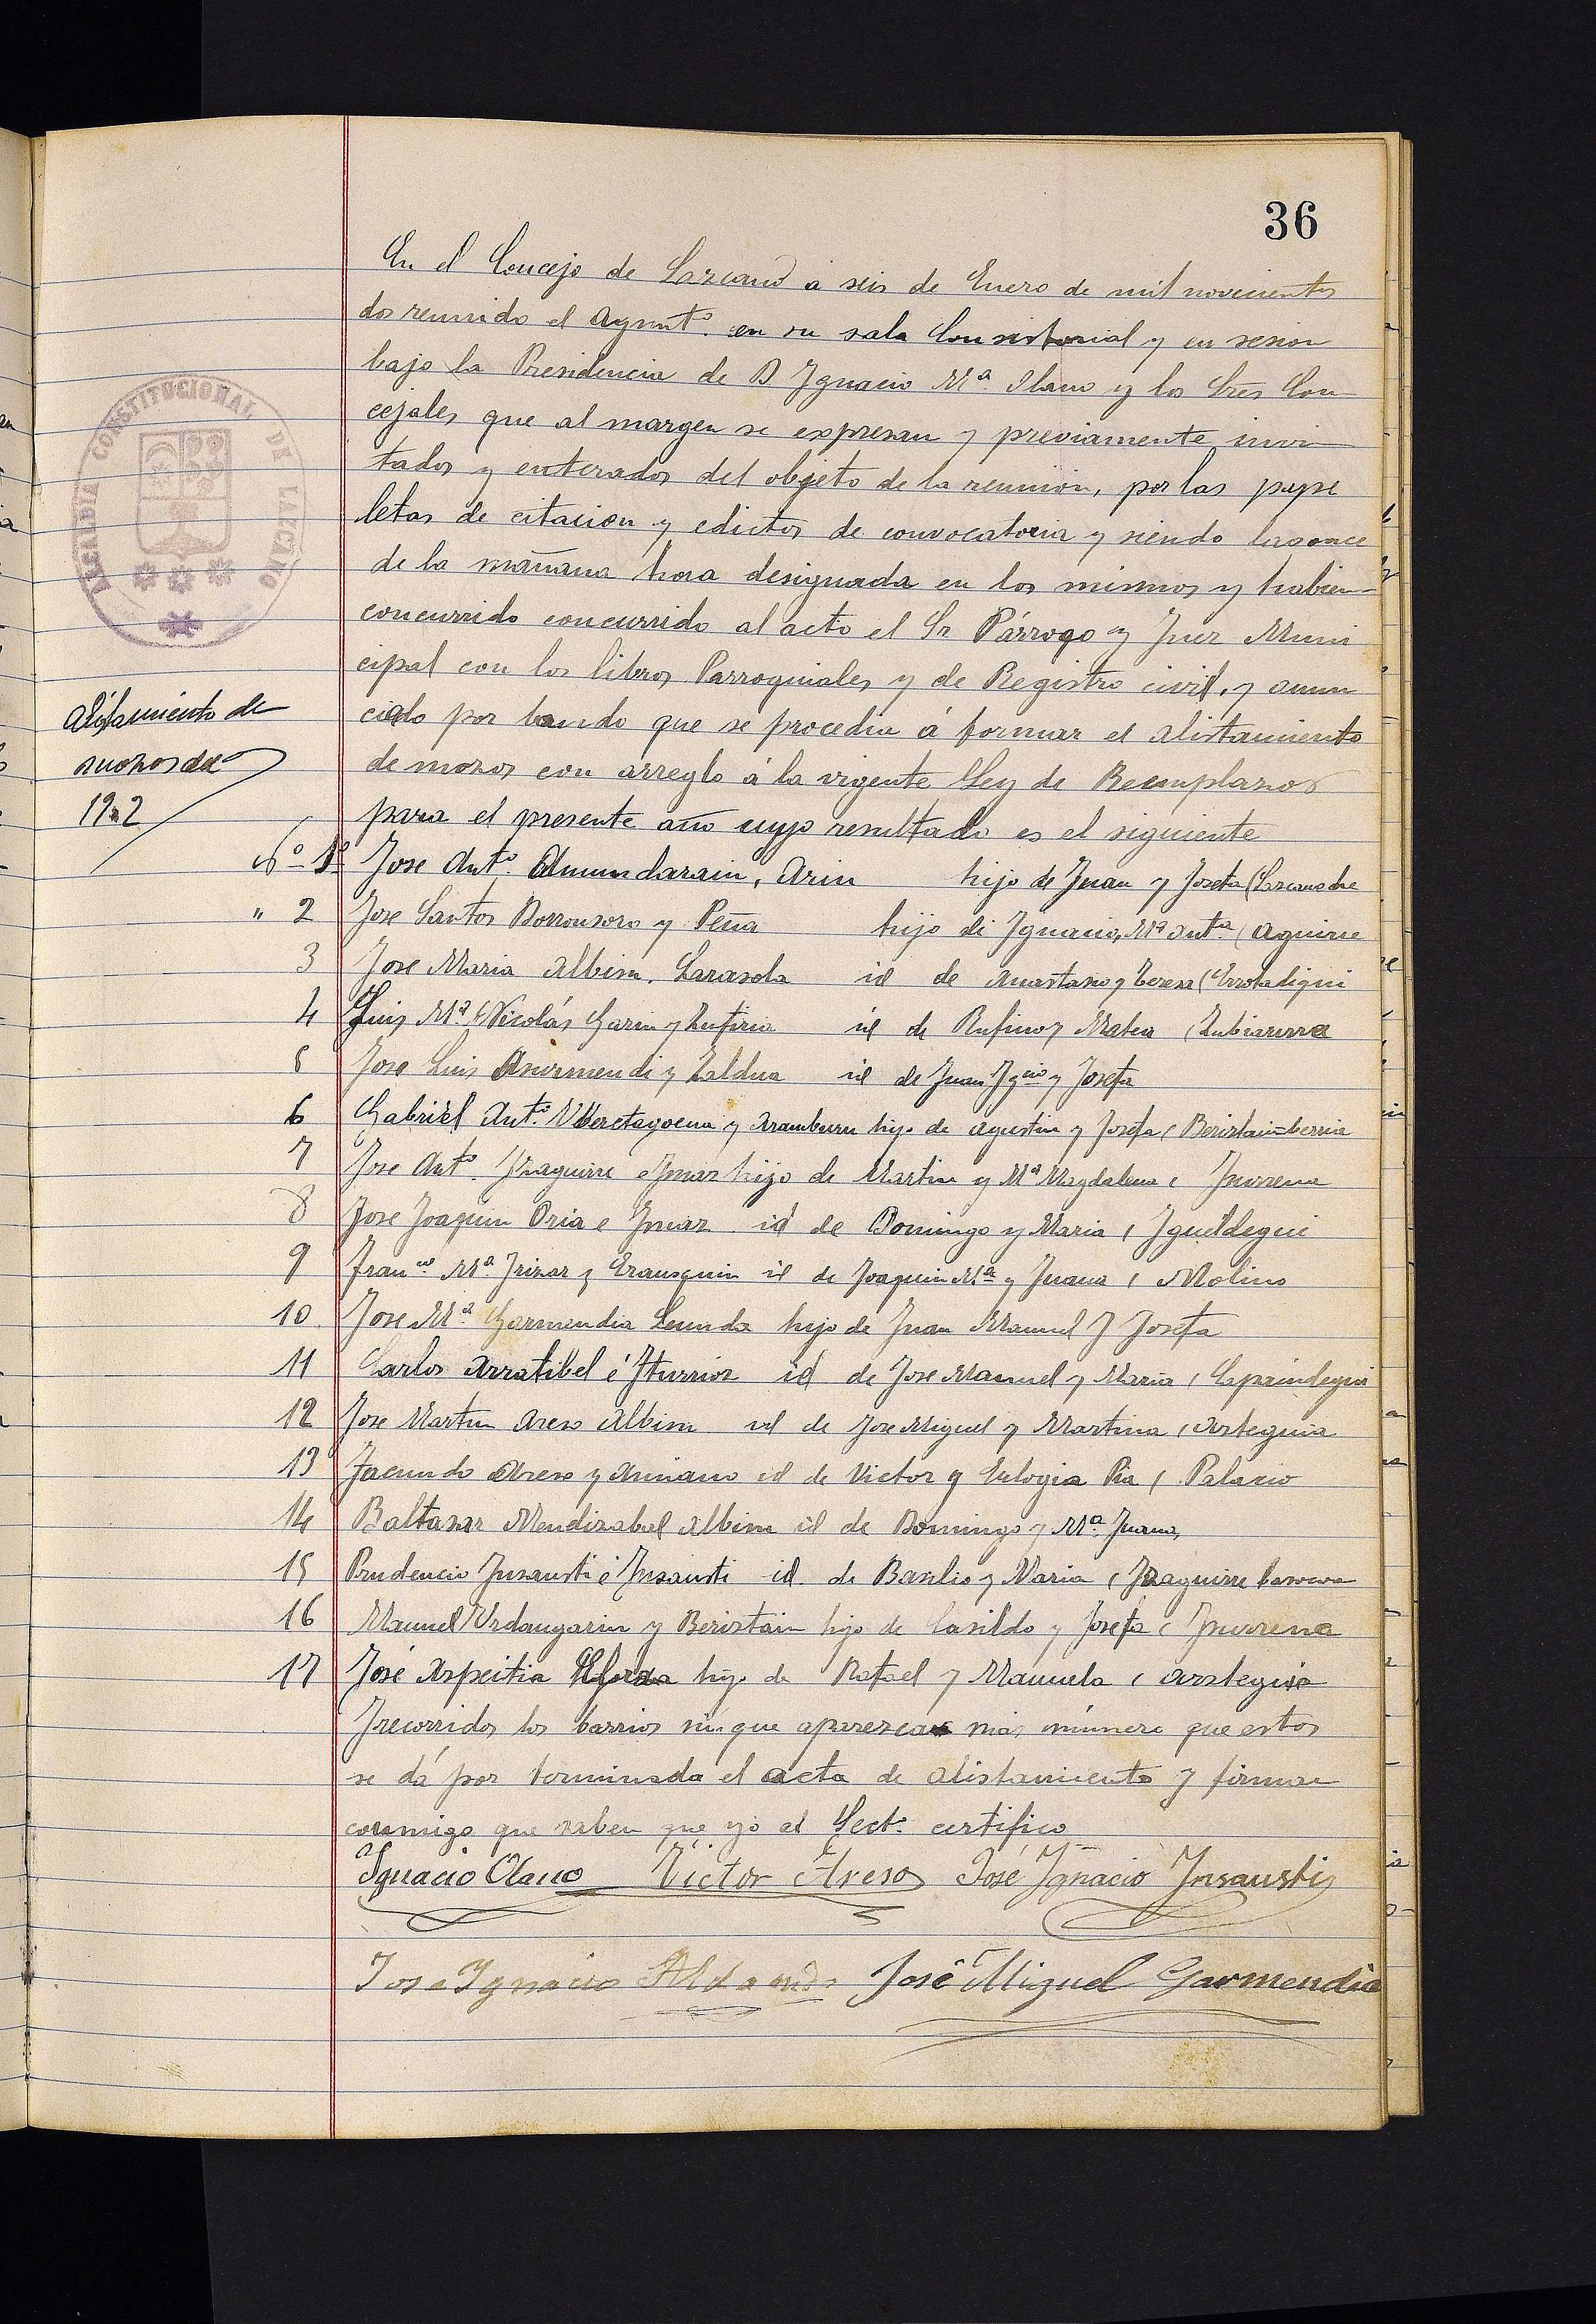 36
En el Concejo de Lazcano á seis de Enero de mil novecientos
dos reunido el Ayuntº. en su sala Consistorial y en sesion
bajo la Presidencia de D Ygnacio Mª. Olano y los Sres Con
cejales que al margen se expresan y previamente invi
tados y enterados del objeto de la reunion, por las pape
letas de citacion y edictos de convocatoria y siendo las once
de la mañana hora designada en los mismos y habien
concurrido concurrido al acto el Sr Párroqo y Juez Muni
cipal con los libros Parroquiales y de Registro civil, y anun
ciado por bando que se procedia á formar el alistamiento
de mozos con arreglo á la vigente Ley de Reemplazos
para el presente año cuyo resultado es el siguiente
ALCALDIA CONSTITUCIONAL DE LAZCANO
Alistamiento de
mozos de
1902
Nº 1º Jose Antº. Amundarain, Arin hijo de Juan y Josefa (Lazcano
" 2 Jose Santos Dorronsoro y Peña hijo de Ygnacio, Mª Antª (Aguirre
3 Jose Maria Albisu, Larasola id de Anastasio y Teresa (Errotadigui
4 Luis Mª Nicolás Garin y id de Rufino y Matea (Zubiaurra
5 Jose Luis Asurmendi y Zaldua id de Juan Ygcio y Josefa
6 Gabriel Antº. y Aramburu hijo de Agustin y Josefa (Beristain berria
7 Jose Antº. Yraguirre e Ynsaz hijo de Martin y Mª Magdalena (
8 Jose Joaquin Oria e id de Domingo y Maria (
9 Franco Mª. Irizar y Erausquin id de Joaquin Mª y Juana ( Molino
10 Jose Mª Garmendia Leunda hijo de Juan Manuel y Josefa
11 Carlos Arratibel é Yturrioz id de Jose Manuel y Maria (
12 Jose Martin Areso Albisu id de Jose Miguel y Martina (Arteguia
13 Facundo Areso y id de Victor y Eulogia Pia ( Palacio
14 Baltasar Mendizabal Albisu id de Domingo y Mª. Juana,
15 Prudencio Ynsausti é Ynsausti id de Basilio y Maria ( Yraguirre
16 Manuel Urdangarin y Beristain hijo de Casildo y Josefa (
17 José Azpeitia hijo de Rafael y Manuela (
Y recorridos los barrios sin que aparezcan mas número que estos
se dá por terminada el acta de alistamiento y firman
conmigo que saben que yo el Sectº. certifico
Ygnacio Olano Victor Areso José Ygnacio Ynsausti
Jose Ygnacio José Miguel Garmendia